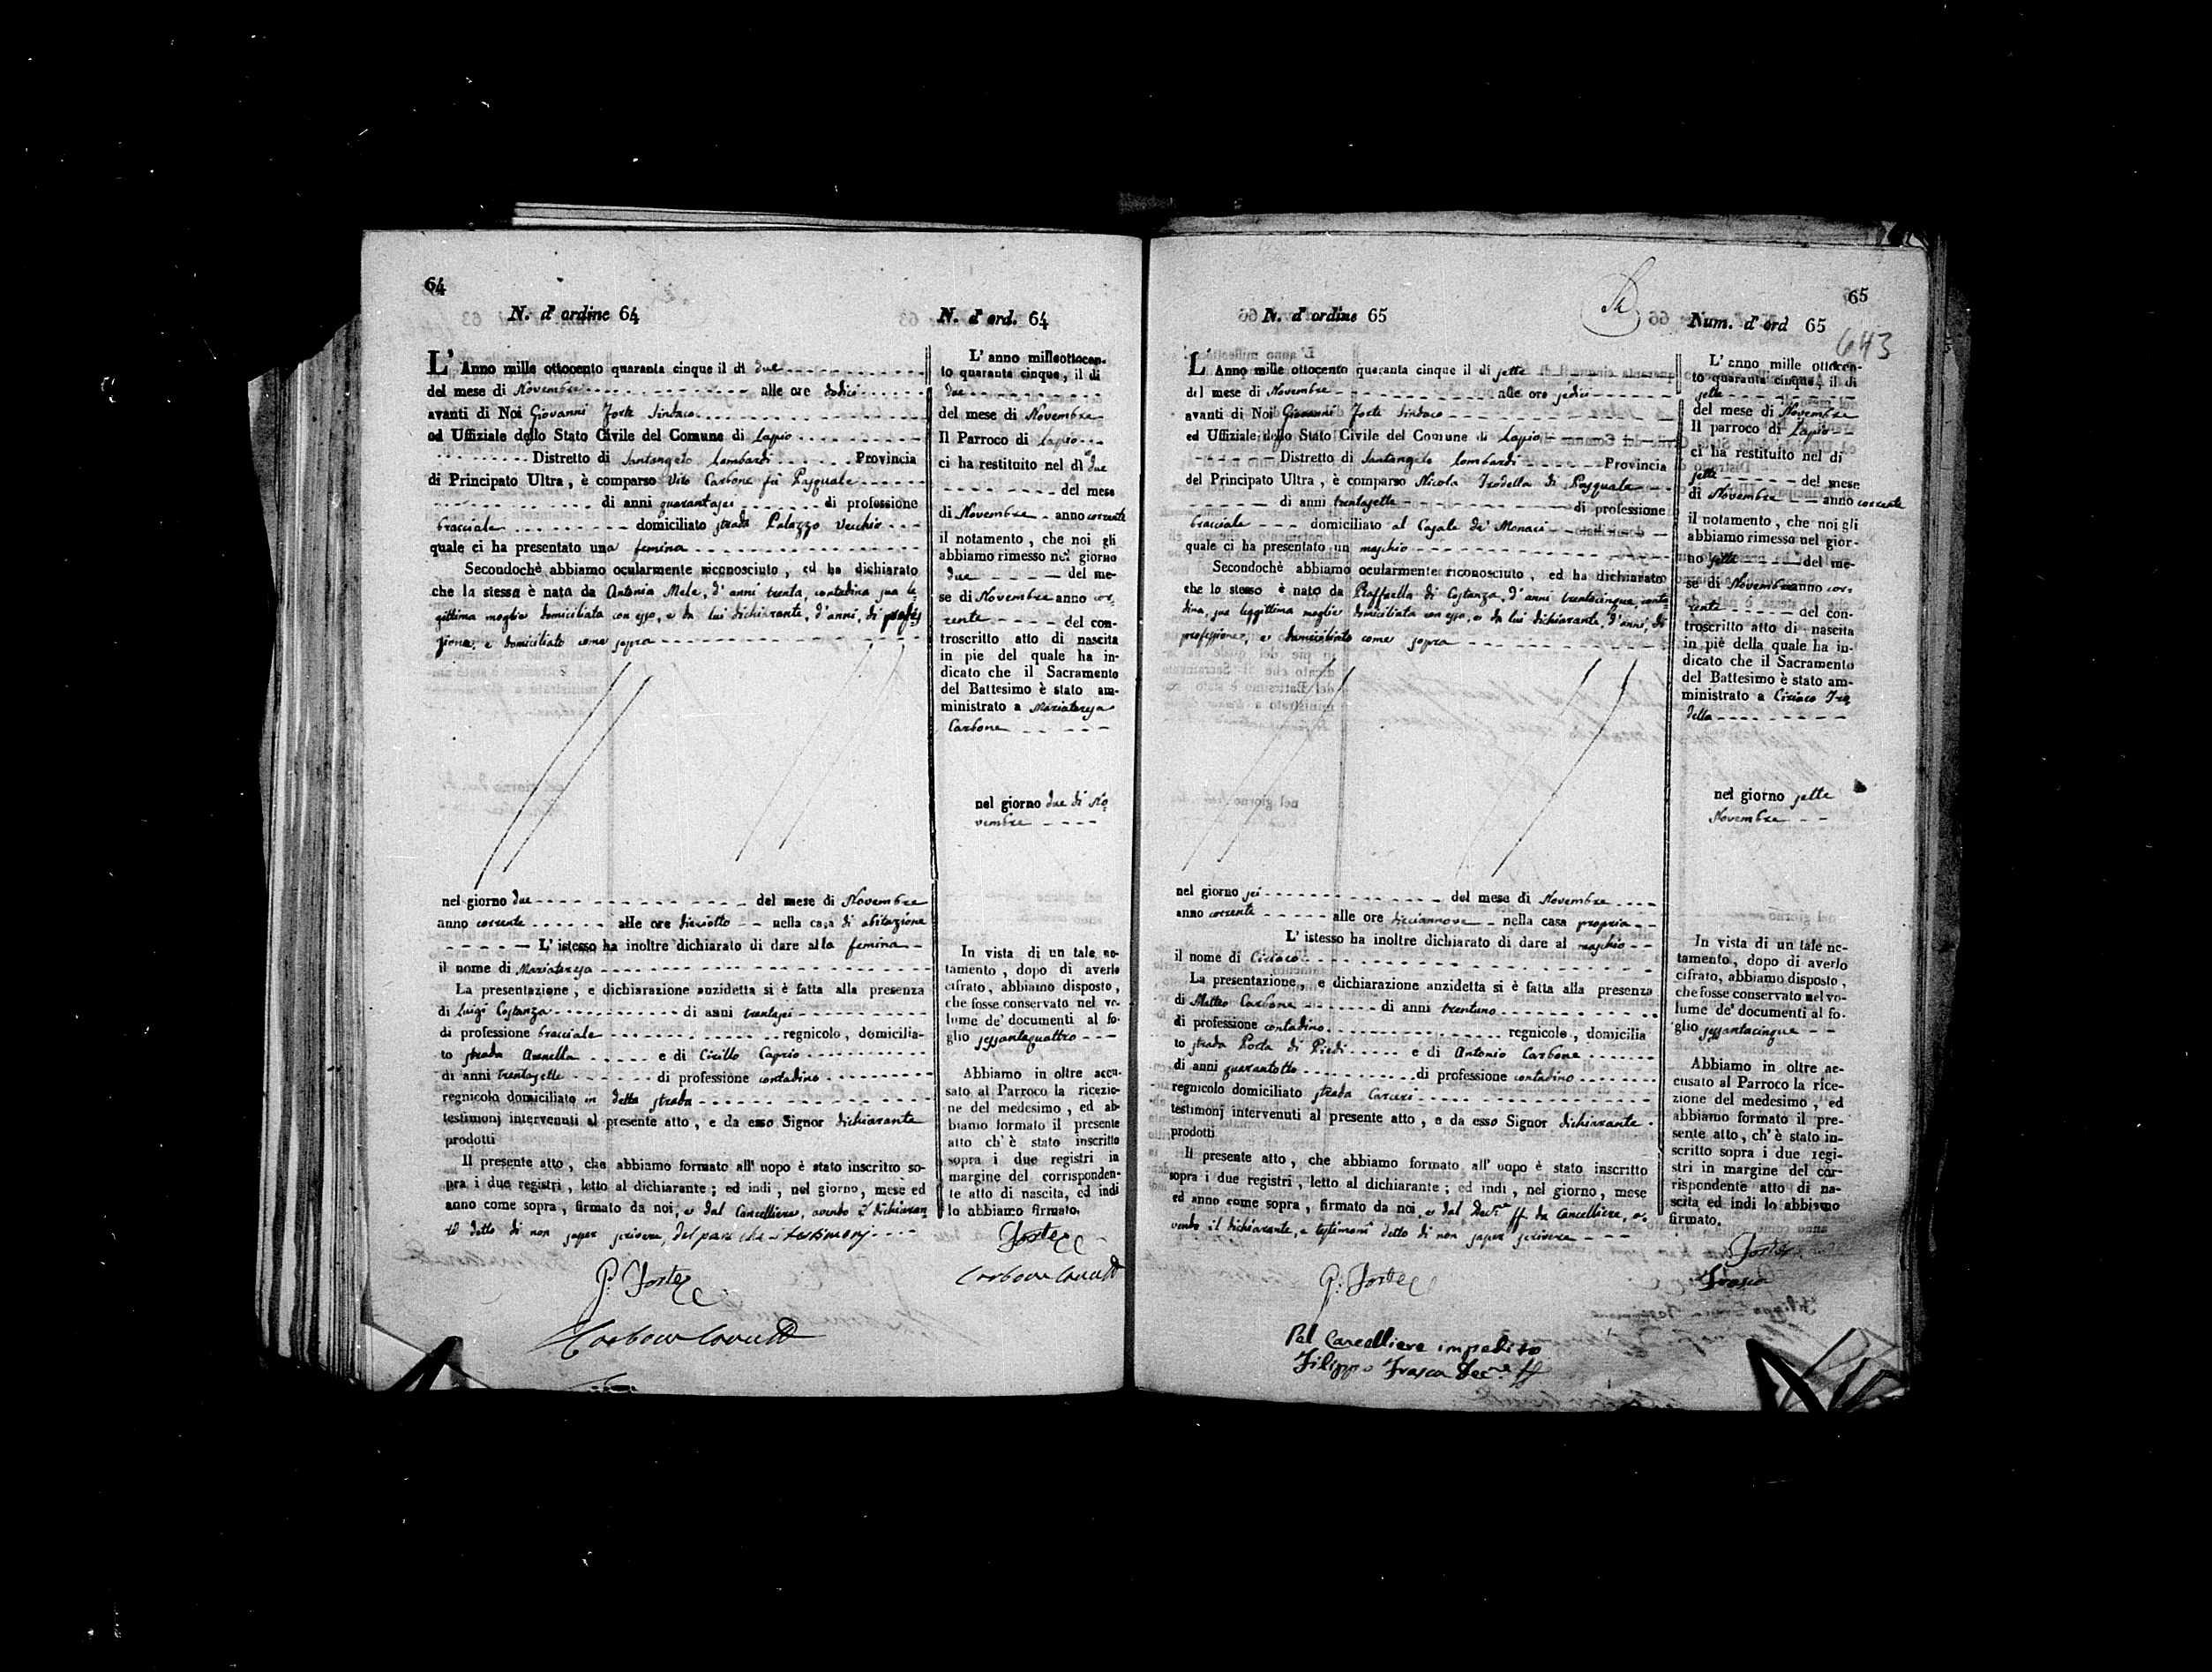 64
N. d'ordine 64
L'Anno mille ottocento quaranta cinque il dì due
del mese di Novembre alle ore dodici
avanti di Noi Giovanni Forte Sindaco
ed Uffiziale dello Stato Civile del Comune di Lapio
Distretto di Santangelo Lombardi Provincia
di Principato Ultra, è comparso Vito Carbone fu Pasquale
di anni quarantasei di professione
bracciale domiciliato strada Palazzo Vecchio
quale ci ha presentato una femina
Secondochè abbiamo ocularmente riconosciuto, ed ha dichiarato
che la stessa è nata da Antonia Mele, d'anni trenta, contadina sua le-
gittima moglie domiciliata con esso, e da lui dichiarante, d'anni, di profes
sione, e domiciliato come sopra
nel giorno due del mese di Novembre
anno corrente alle ore dieciotto nella casa di abitazione
L'istesso ha inoltre dichiarato di dare alla femina
il nome di Mariateresa
La presentazione, e dichiarazione anzidetta si è fatta alla presenza
di Luigi Costanza di anni trentasei
di professione bracciale regnicolo, domicilia-
to strada Annella e di Cirillo Caprio
di anni trentasette di professione contadino
regnicolo domiciliato in detta strada
testimonj intervenuti al presente atto, e da esso Signor dichiarante
prodotti
Il presente atto, che abbiamo formato all'uopo è stato inscritto so-
pra i due registri, letto al dichiarante; ed indi, nel giorno, mese ed
anno come sopra, firmato da noi, e dal Cancelliere, avendo il dichiaran
te detto di non saper scrivere, del pari che i testimonj
G. Forte
N. d'ord. 64
L'anno milleottocen-
to quaranta cinque, il dì
due
del mese di Novembre
Il Parroco di Lapio
ci ha restituito nel dì due
del mese
di Novembre anno corrente
il notamento, che noi gli
abbiamo rimesso nel giorno
due del me-
se di Novembre anno cor-
rente del con-
troscritto atto di nascita
in pie del quale ha in-
dicato che il Sacramento
del Battesimo è stato am-
ministrato a Mariateresa
Carbone
nel giorno due di No
vembre
In vista di un tale no-
tamento, dopo di averlo
cifrato, abbiamo disposto,
che fosse conservato nel vo-
lume de' documenti al fo-
glio sessantaquattro
Abbiamo in oltre accu-
sato al Parroco la ricezio-
ne del medesimo, ed ab-
biamo formato il presente
atto ch'è stato inscritto
sopra i due registri in
margine del corrisponden-
te atto di nascita, ed indi
lo abbiamo firmato.
Forte
65
643
N. d'ordine 65
L'Anno mille ottocento quaranta cinque il dì sette
del mese di Novembre alle ore sedici
avanti di Noi Giovanni Forte Sindaco
ed Uffiziale dello Stato Civile del Comune di Lapio
Distretto di Santangelo Lombardi Provincia
del Principato Ultra, è comparso Nicola Trodella di Pasquale
di anni trentasette di professione
bracciale domiciliato al Casale de' Monaci
quale ci ha presentato un maschio
Secondochè abbiamo ocularmente riconosciuto, ed ha dichiarato
che lo stesso è nato da Raffaella di Costanza, d'anni trentacinque, conta-
dina, sua leggittima moglie domiciliata con esso, e da lui dichiarante, d'anni, di
professione, e domiciliato come sopra
nel giorno sei del mese di Novembre
anno corrente alle ore diciannove nella casa propria
L'istesso ha inoltre dichiarato di dare al maschio
il nome di Ciriaco
La presentazione, e dichiarazione anzidetta si è fatta alla presenza
di Matteo Carbone di anni trentuno
di professione contadino regnicolo, domicilia
to strada Porta di Piedi e di Antonio Carbone
di anni quarantotto di professione contadino
regnicolo domiciliato strada Carceri
testimonj intervenuti al presente atto, e da esso Signor dichiarante
prodotti
Il presente atto, che abbiamo formato all'uopo è stato inscritto
sopra i due registri, letto al dichiarante; ed indi, nel giorno, mese
ed anno come sopra, firmato da noi, e dal Dec.ne ff da Cancelliere, a-
vendo il dichiarante, e testimoni detto di non saper scrivere
G. Forte
Pel Cancelliere impedito
Filippo Frasca Dec.ne ff
Num. d'ord 65
L'anno mille ottocen-
to quaranta cinque, il dì
sette
del mese di Novembre
Il parroco di Lapio
ci ha restituito nel dì
sette del mese
di Novembre anno corrente
il notamento, che noi gli
abbiamo rimesso nel gior-
no sette del me-
se di Novembre anno cor-
rente del con-
troscritto atto di nascita
in piè della quale ha in-
dicato che il Sacramento
del Battesimo è stato am-
ministrato a Ciriaco Tro
della
nel giorno sette
Novembre
In vista di un tale no-
tamento, dopo di averlo
cifrato, abbiamo disposto,
che fosse conservato nel vo-
lume de' documenti al fo-
glio sessantacinque
Abbiamo in oltre ac-
cusato al Parroco la rice-
zione del medesimo, ed
abbiamo formato il pre-
sente atto, ch'è stato in-
scritto sopra i due regi-
stri in margine del cor-
rispondente atto di na-
scita ed indi lo abbiamo
firmato.
Forte
Frasca